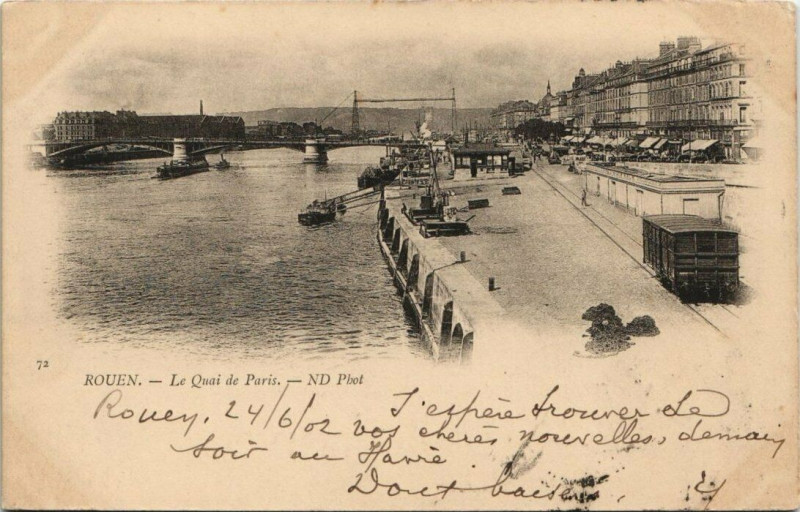 72
ROUEN. — Le Quai de Paris. — ND Phot
Rouen, 24/6/02 J'espère trouver ce
soir vos chères nouvelles, demain
au Havre.
Doux baisers,